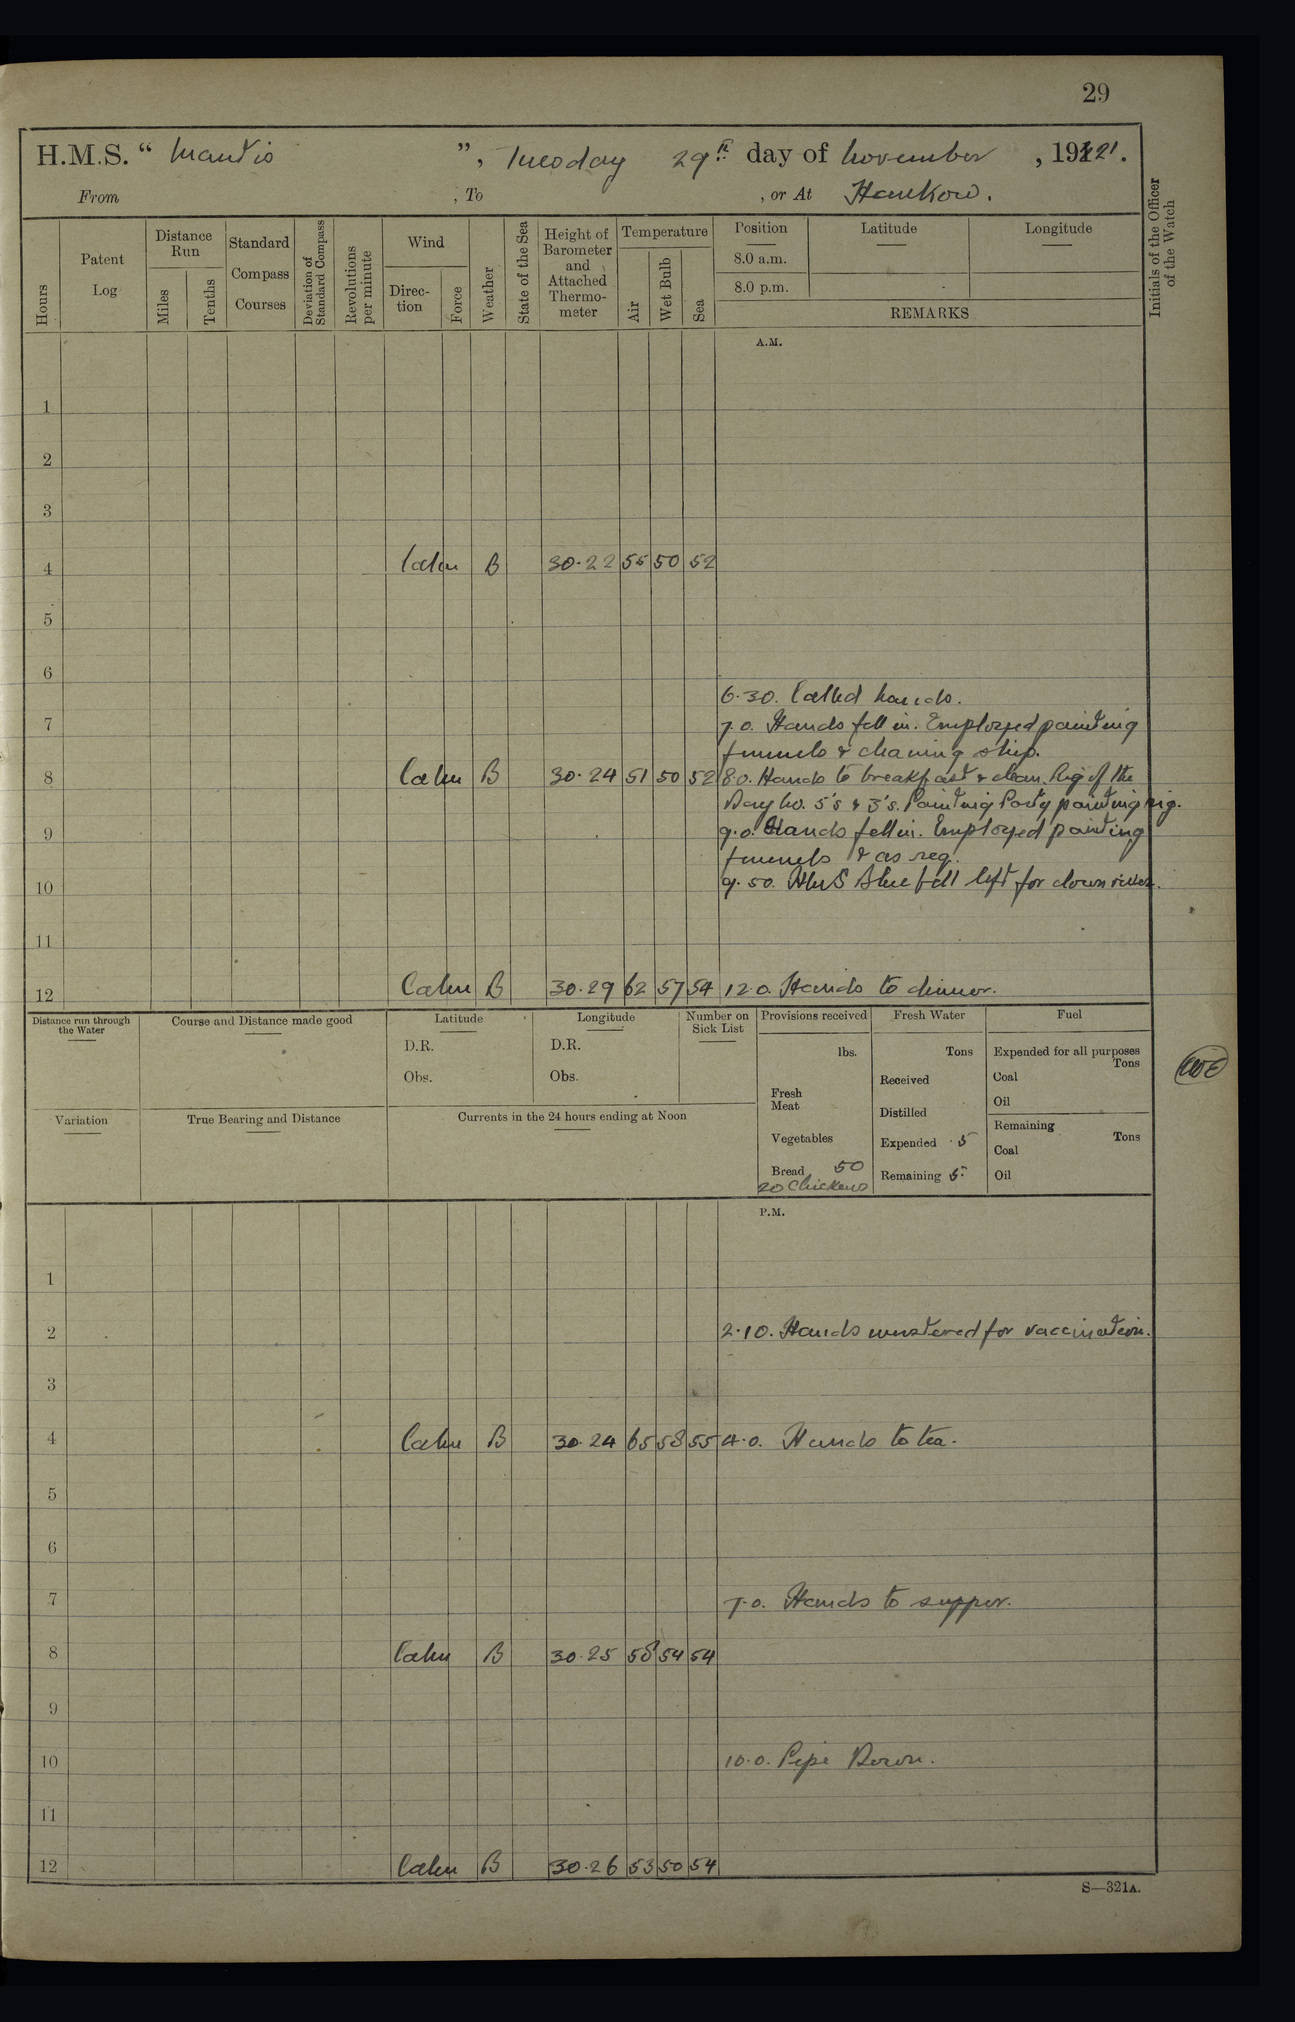 29
H.M.S. “ Mantis ”, Tuesday 29th day of November , 1921.
From , To , or At Hankow.
Hours Patent Log Distance Run Miles Tenths Standard Compass Courses Deviation of Standard Compass Revolutions per minute Wind Direction Force Weather State of the Sea Height of Barometer and Attached Thermometer Temperature Air Wet Bulb Sea Position 8.0 a.m. 8.0 p.m. Latitude Longitude REMARKS Initials of the Officer of the Watch
A.M.
1
2
3
4 Calm B 30.22 55 50 52
5
6
6.30. Called hands.
7 7.0. Hands fell in. Employed painting
funnels & cleaning ship.
8 Calm B 30.24 51 50 52 8.0. Hands to breakfast & clean. Rig of the
Day No. 5's & 3's. Painting Party painting rig.
9 9.0. Hands fell in. Employed painting
funnels & as req.
10 9.50. HMS Bluebell left for down river.
11
12 Calm B 30.29 62 57 54 12.0. Hands to dinner.
Distance run through the Water Course and Distance made good Latitude Longitude Number on Sick List Provisions received Fresh Water Fuel
D.R. D.R. lbs. Tons Expended for all purposes Tons
Obs. Obs. Received Coal
Fresh Meat Distilled Oil
Variation True Bearing and Distance Currents in the 24 hours ending at Noon
Vegetables Expended .5 Remaining Tons
Coal
Bread 50 Remaining 5. Oil
20 Chickens
P.M.
1
2 2.10. Hands mustered for vaccination.
3
4 Calm B 30.24 65 58 55 4.0. Hands to tea.
5
6
7 7.0. Hands to supper.
8 Calm B 30.25 58 54 54
9
10 10.0. Pipe Down.
11
12 Calm B 30.26 53 50 54
S—321A.